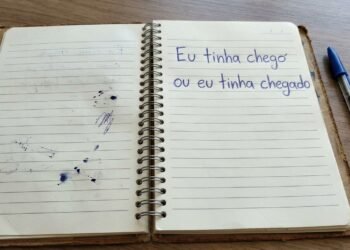 Eu tinha chego
ou eu tinha chegado